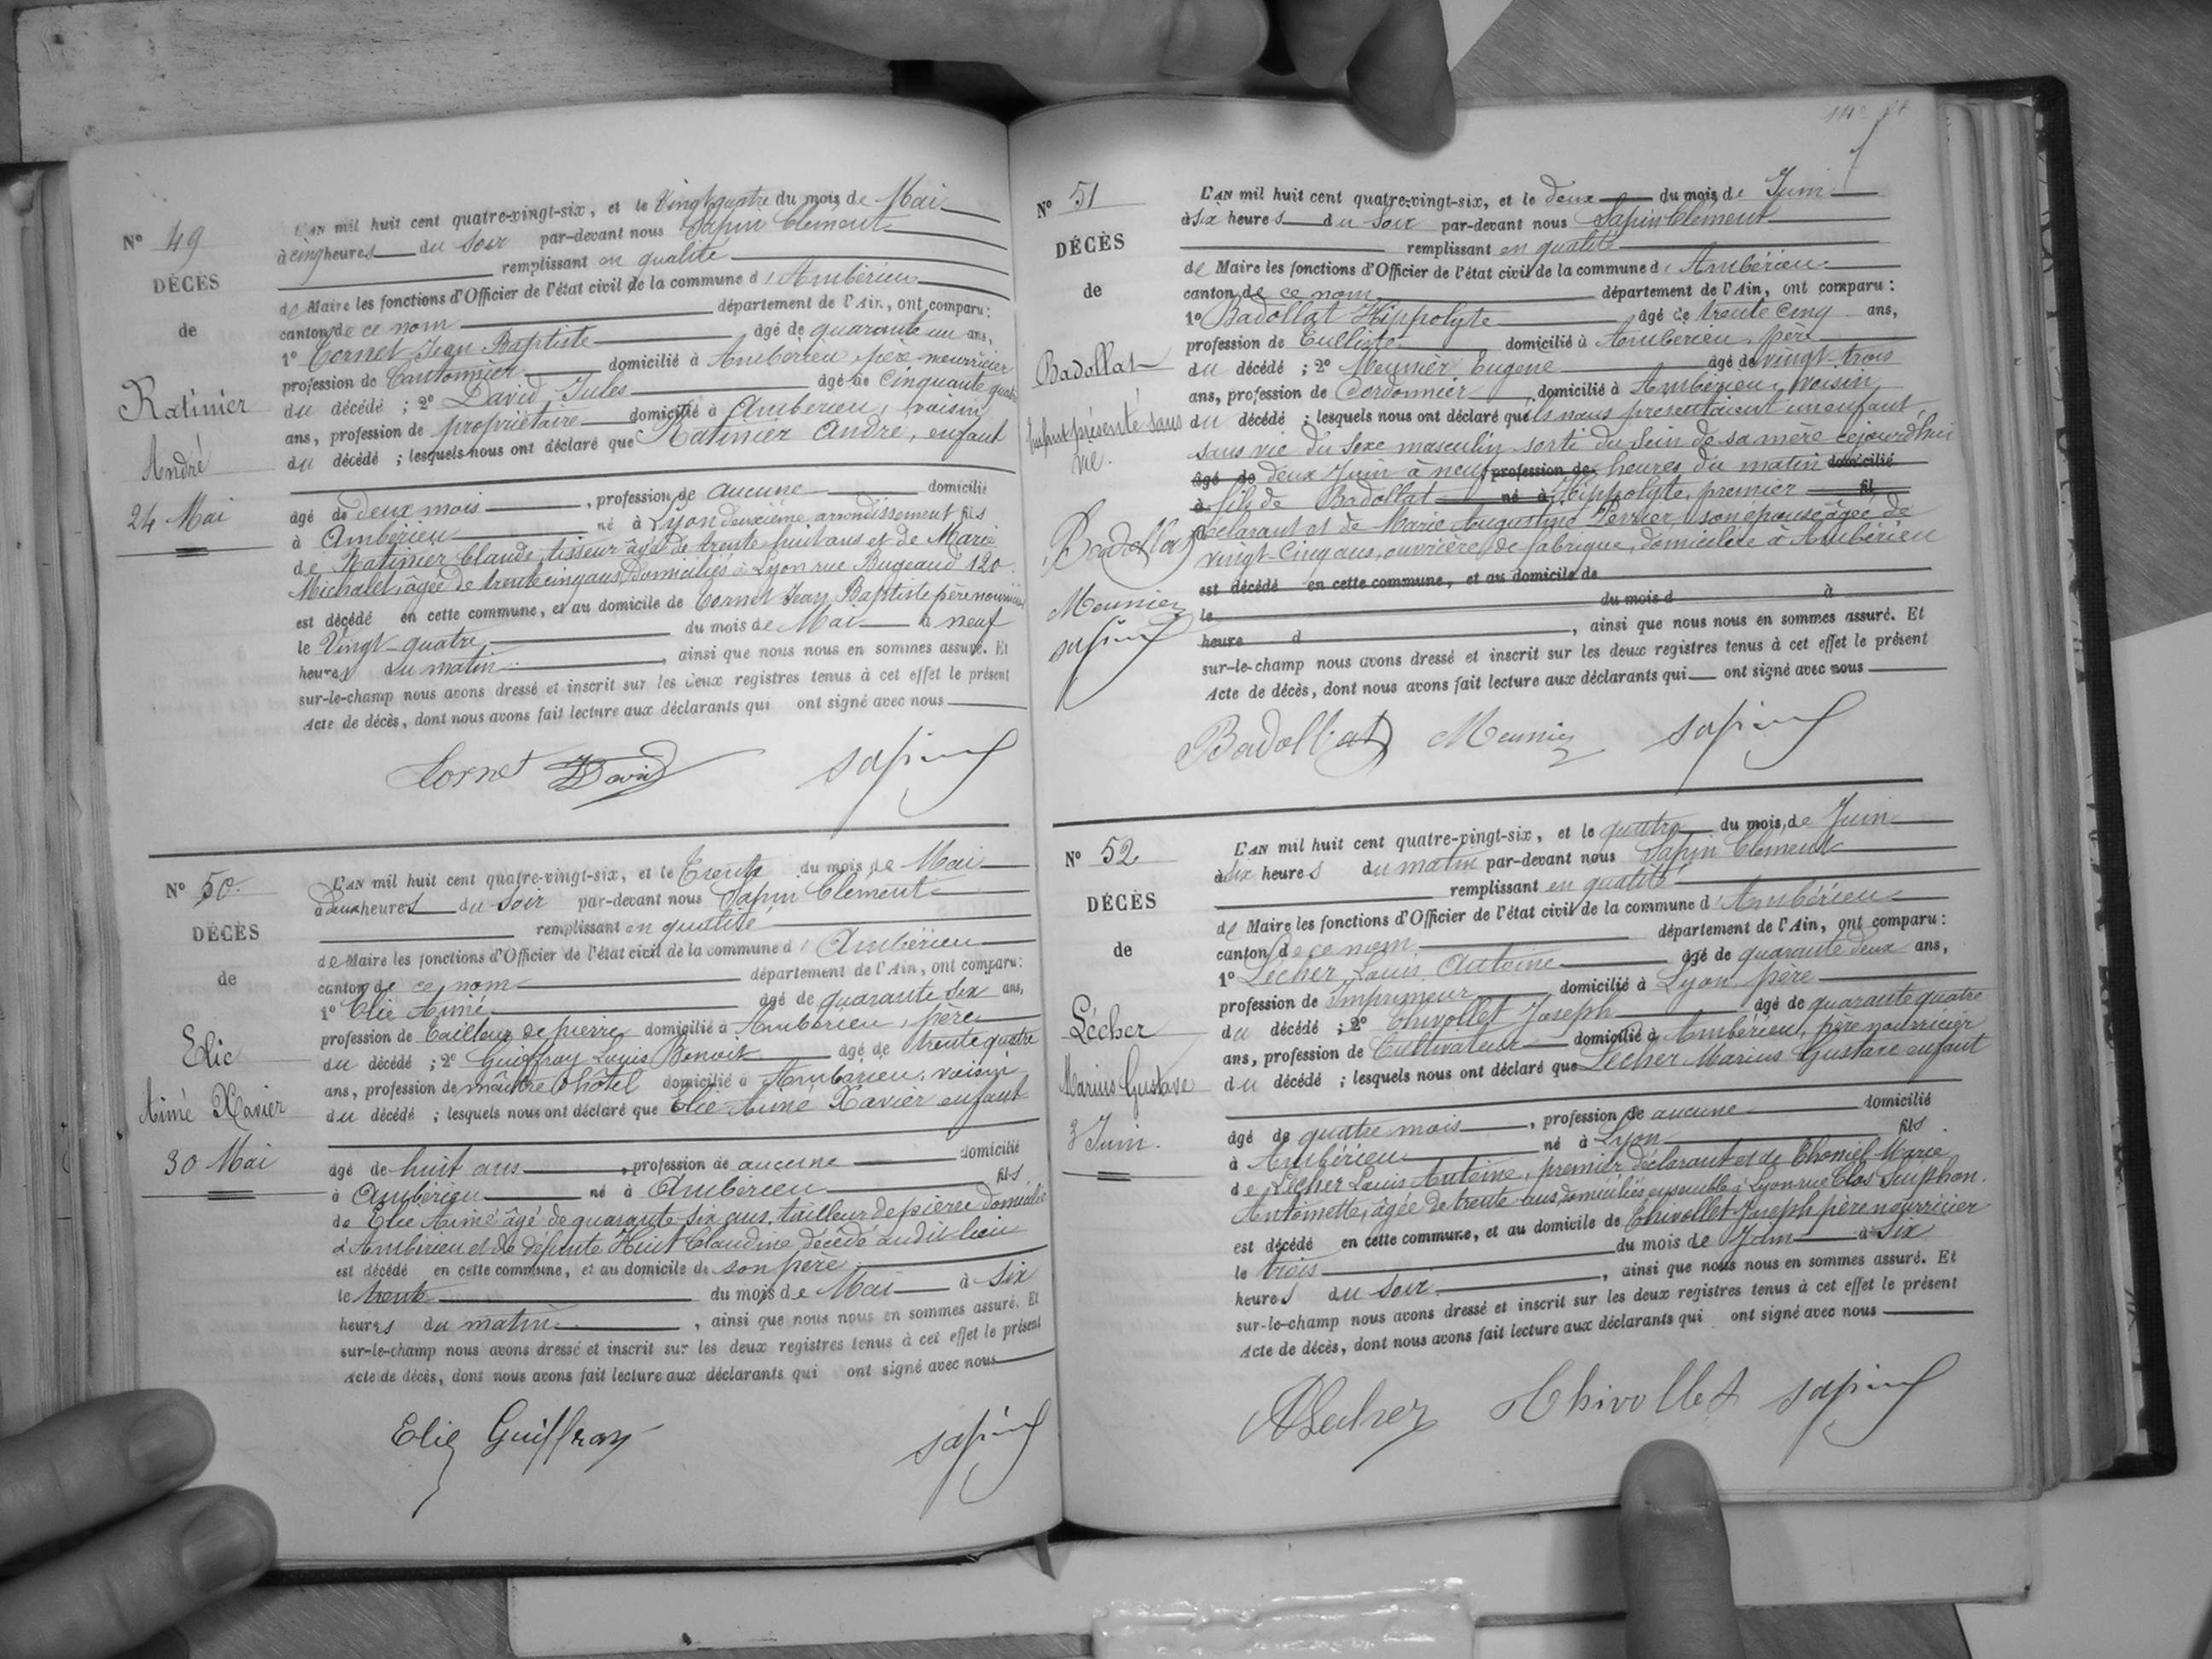 N° 49
DÉCÈS
de
Ratinier
André
24 Mai
L'AN mil huit cent quatre-vingt-six, et le Vingt quatre du mois de Mai
à cinq heures du soir par-devant nous Sapin Clément
remplissant en qualité
de Maire les fonctions d'Officier de l'état civil de la commune d'Ambérieu
canton de ce nom département de l'Ain, ont comparu :
1° Cornet Jean Baptiste âgé de quarante un ans,
profession de Cantonnier domicilié à Ambérieu, père nourricier
du décédé ; 2° David Jules âgé de Cinquante quatre
ans, profession de propriétaire domicilié à Ambérieu, voisin
du décédé ; lesquels nous ont déclaré que Ratinier André, enfant
âgé de deux mois, profession de aucune domicilié
à Ambérieu né à Lyon deuxième arrondissement fils
de Ratinier Claude, tisseur âgé de trente huit ans et de Marie
Michalet, âgée de trente cinq ans, domiciliés à Lyon rue Bugeaud 120
est décédé en cette commune, et au domicile de Cornet Jean Baptiste père nourricier
le Vingt-quatre du mois de Mai à neuf
heures du matin, ainsi que nous nous en sommes assuré. Et
sur-le-champ nous avons dressé et inscrit sur les deux registres tenus à cet effet le présent
Acte de décès, dont nous avons fait lecture aux déclarants qui ont signé avec nous
Cornet David Sapin
N° 50
DÉCÈS
de
Elie
Aimé Xavier
30 Mai
L'AN mil huit cent quatre-vingt-six, et le Trente du mois de Mai
à deux heures du soir par-devant nous Sapin Clément
remplissant en qualité
de Maire les fonctions d'Officier de l'état civil de la commune d'Ambérieu
canton de ce nom département de l'Ain, ont comparu :
1° Elie Aimé âgé de quarante six ans,
profession de Tailleur de pierre domicilié à Ambérieu, père
du décédé ; 2° Guiffray Louis Benoit âgé de trente quatre
ans, profession de maître d'hôtel domicilié à Ambérieu, voisin
du décédé ; lesquels nous ont déclaré que Elie Aimé Xavier enfant
âgé de huit ans, profession de aucune domicilié
à Ambérieu né à Ambérieu fils
de Elie Aimé âgé de quarante six ans, tailleur de pierre domicilié
à Ambérieu et de défunte Huit Claudine décédé audit lieu
est décédé en cette commune, et au domicile de son père
le trente du mois de Mai à six
heures du matin, ainsi que nous nous en sommes assuré. Et
sur-le-champ nous avons dressé et inscrit sur les deux registres tenus à cet effet le présent
Acte de décès, dont nous avons fait lecture aux déclarants qui ont signé avec nous
Elie Guiffray Sapin
N° 51
DÉCÈS
de
Badollat
Enfant présenté sans
vie.
Badollat
Meunier
Sapin
L'AN mil huit cent quatre-vingt-six, et le deux du mois de Juin
à six heures du soir par-devant nous Sapin Clément
remplissant en qualité
de Maire les fonctions d'Officier de l'état civil de la commune d'Ambérieu
canton de ce nom département de l'Ain, ont comparu :
1° Badollat Hippolyte âgé de trente cinq ans,
profession de Tulliste domicilié à Ambérieu, père
du décédé ; 2° Meunier Eugène âgé de vingt-trois
ans, profession de Cordonnier, domicilié à Ambérieu, voisin
du décédé ; lesquels nous ont déclaré qu'ils nous présentaient un enfant
sans vie du sexe masculin sorti du sein de sa mère cejourd'hui
âgé de deux Juin à neuf profession de heures du matin domicilié
à fils de Badollat né à Hippolyte, premier fil
déclarant et de Marie Augustine Perrier, son épouse âgée de
vingt-cinq ans, ouvrière de fabrique, domiciliée à Ambérieu
est décédé en cette commune, et au domicile de
le du mois d à
heure d, ainsi que nous nous en sommes assuré. Et
sur-le-champ nous avons dressé et inscrit sur les deux registres tenus à cet effet le présent
Acte de décès, dont nous avons fait lecture aux déclarants qui ont signé avec nous
Badollat Meunier Sapin
N° 52
DÉCÈS
de
Lécher
Marius Gustave
3 Juin.
L'AN mil huit cent quatre-vingt-six, et le quatre du mois de Juin
à dix heures du matin par-devant nous Sapin Clément
remplissant en qualité
de Maire les fonctions d'Officier de l'état civil de la commune d'Ambérieu
canton de ce nom département de l'Ain, ont comparu :
1° Lécher Louis Antoine âgé de quarante deux ans,
profession de Imprimeur domicilié à Lyon, père
du décédé ; 2° Chivollet Joseph âgé de quarante quatre
ans, profession de Cultivateur domicilié à Ambérieu, père nourricier
du décédé ; lesquels nous ont déclaré que Lécher Marius Gustave enfant
âgé de quatre mois, profession de aucune domicilié
à Ambérieu né à Lyon fils
de Lécher Louis Antoine, premier déclarant et de Thomel Marie
Antoinette, âgée de trente ans, domiciliés ensemble à Lyon rue Clos Suiphon.
est décédé en cette commune, et au domicile de Chivollet Joseph père nourricier
le trois du mois de Juin à six
heures du soir, ainsi que nous nous en sommes assuré. Et
sur-le-champ nous avons dressé et inscrit sur les deux registres tenus à cet effet le présent
Acte de décès, dont nous avons fait lecture aux déclarants qui ont signé avec nous
ALecher Chivollet Sapin